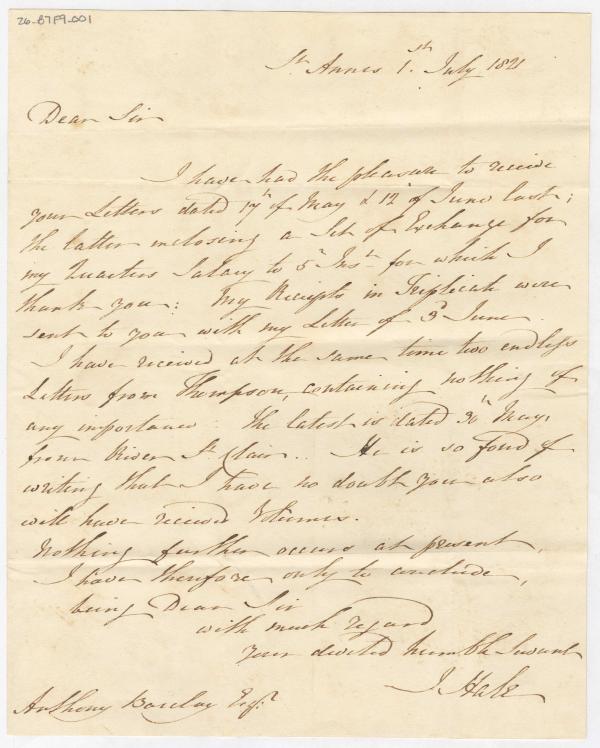 26-B7F9-001
St. Annes 1.st July 1821
Dear Sir
I have had the pleasure to receive
your Letters dated 17th of May & 12th of June last;
the latter inclosing a Set of Exchange for
my Quarters Salary to 5th Inst. for which I
thank you: My Receipts in Triplicate were
sent to you with my Letter of 3d June.
I have received at the same time two endless
Letters from Thompson, containing nothing of
any importance: the latest is dated 30th May,
from River St. Clair.. He is so fond of
writing that I have no doubt you also
will have received Volumes.
Nothing further occurs at present,
I have therefore only to conclude,
being Dear Sir
with much regard
your devoted humble Servant
J. Hale
Anthony Barclay Esqr.